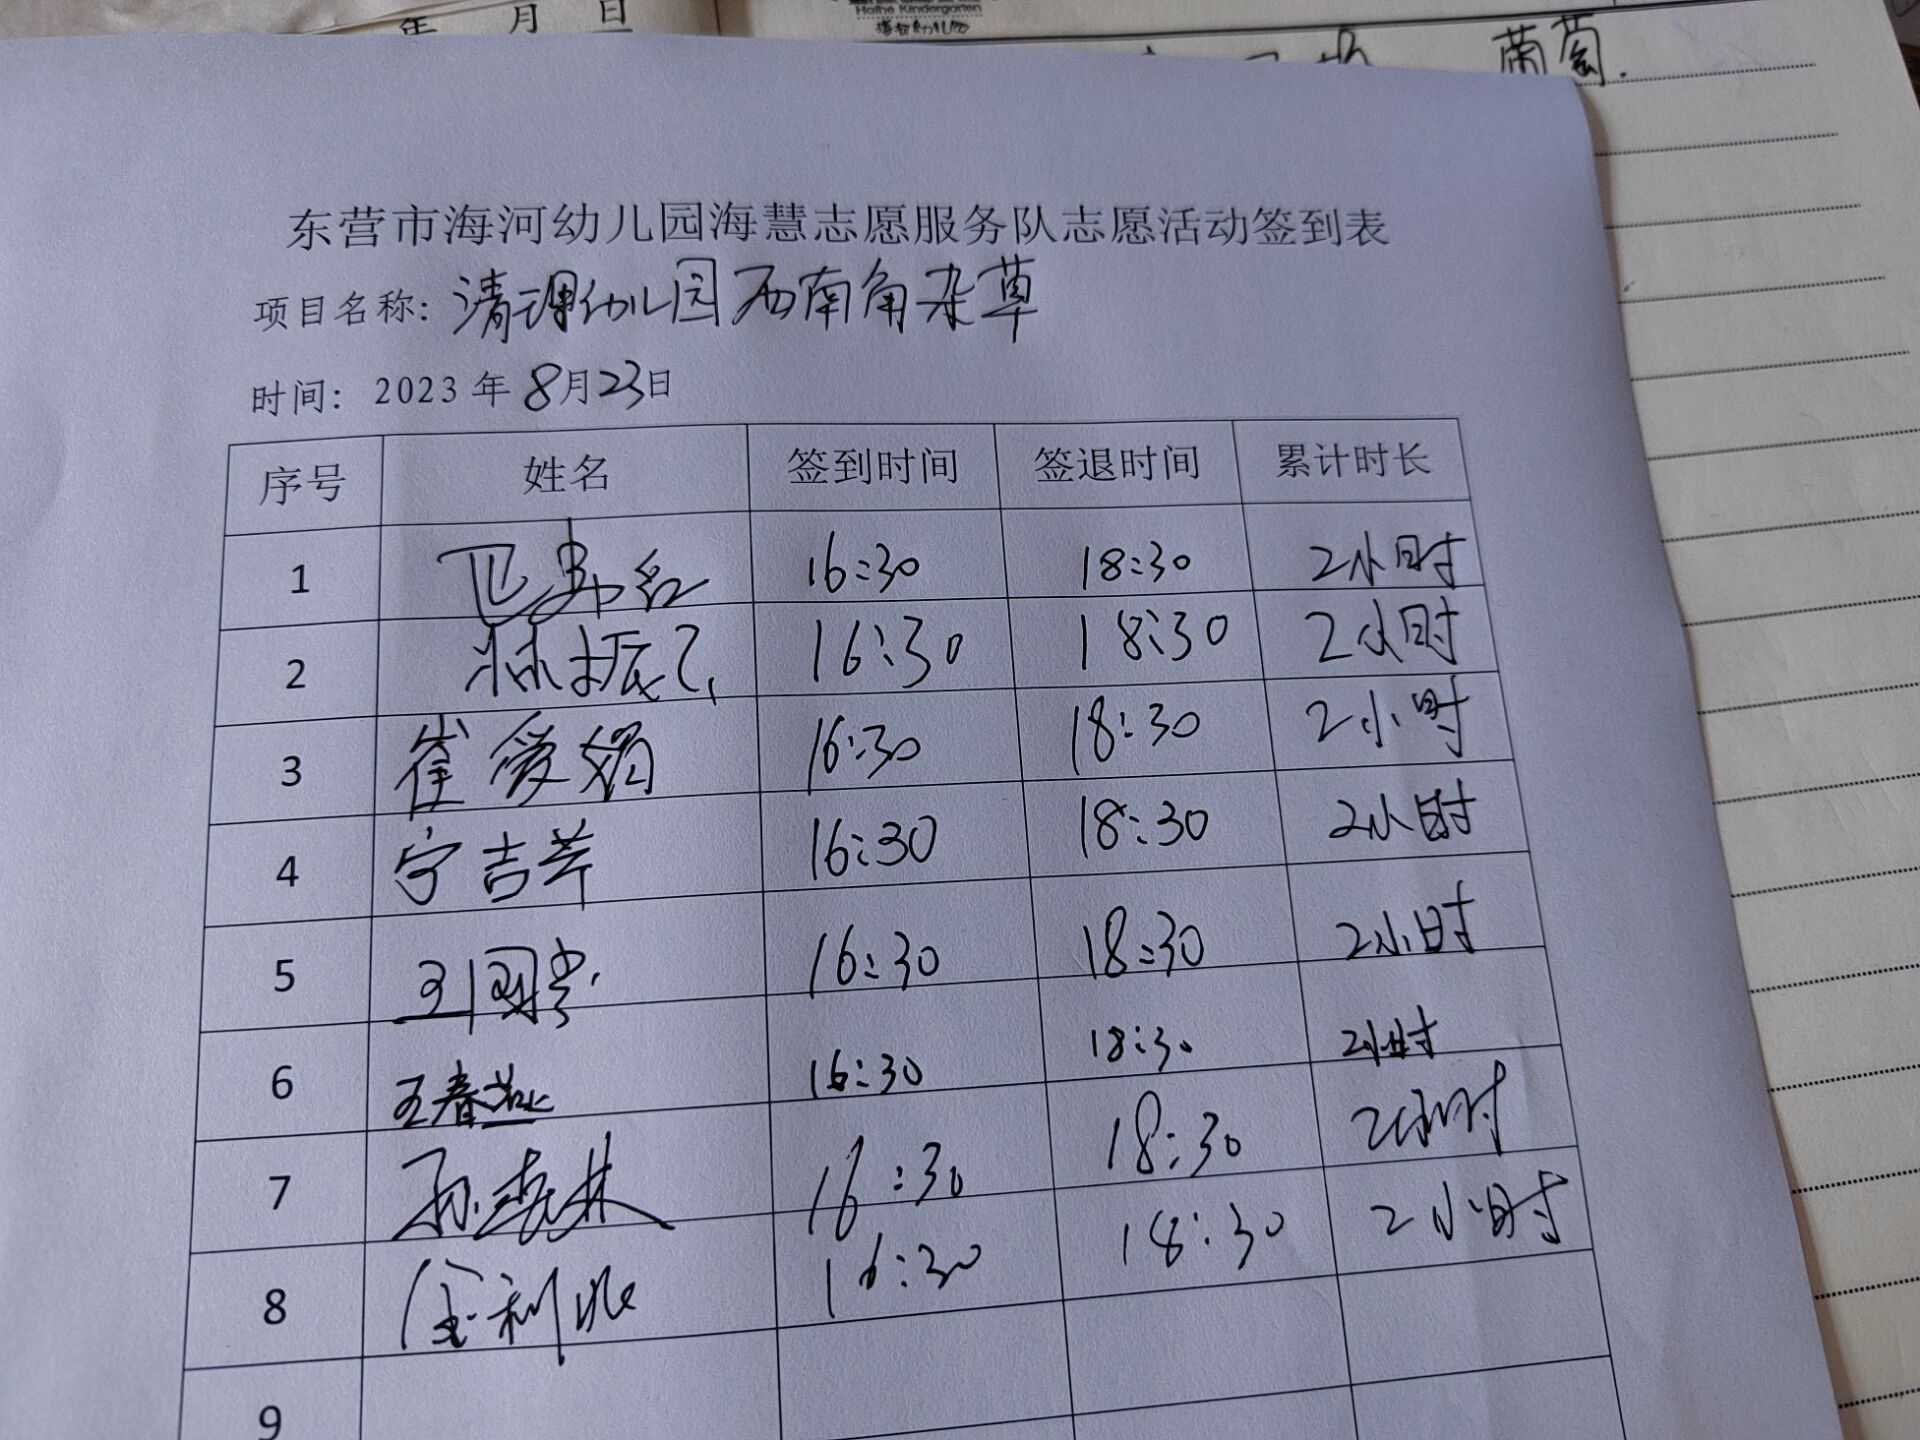 年 月 日
Haihe Kindergarten
海河幼儿园
葡萄.
东营市海河幼儿园海慧志愿服务队志愿活动签到表
项目名称：清理幼儿园西南角杂草
时间：2023年8月23日
序号 姓名 签到时间 签退时间 累计时长
1 16:30 18:30 2小时
2 林振 16:30 18:30 2小时
3 崔爱娟 16:30 18:30 2小时
4 宁吉芹 16:30 18:30 2小时
5 王国 16:30 18:30 2小时
6 王春燕 16:30 18:30 2小时
7 孙 林 16:30 18:30 2小时
8 金利 16:30 18:30 2小时
9